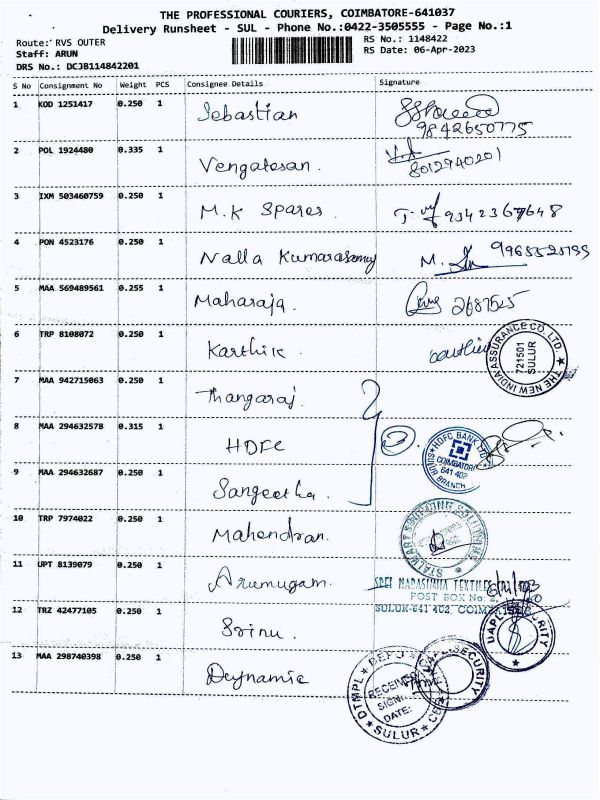 THE PROFESSIONAL COURIERS, COIMBATORE-641037
Delivery Runsheet - SUL - Phone No.:0422-3505555 - Page No.:1
Route: RVS OUTER
RS No.: 1148422
Staff: ARUN
RS Date: 06-Apr-2023
DRS No.: DCJB114842201
S No Consignment No Weight PCS Consignee Details Signature
1 KOD 1251417 0.250 1 Sebastian
9842650775
2 POL 1924480 0.335 1 Vengatesan.
8012940201
3 IXM 503460759 0.250 1 M.K Spares.
4 PON 4523176 0.250 1 Nalla Kumarasamy
5 MAA 569489561 0.255 1 Maharaja. 2687525
6 TRP 8108072 0.250 1 Karthik
THE NEW INDIA ASSURANCE CO. LTD.
721501
SULUR
7 MAA 942715063 0.250 1 Thangaraj.
8 MAA 294632578 0.315 1 HDFC
HDFC BANK LTD
COIMBATORE
641 402
BRANCH
9 MAA 294632687 0.250 1 Sangeetha.
10 TRP 7974022 0.250 1 Mahendran.
11 UPT 8139079 0.250 1 Arumugam.
POST BOX No: 2,
SULUR-641 402,
12 TRZ 42477105 0.250 1 Srinu.
UAPL SECURITY
13 MAA 298740398 0.250 1 Deynamic
DTMPL DEPO
SECURITY
RECEIVED
SIGN:
DATE:
SULUR